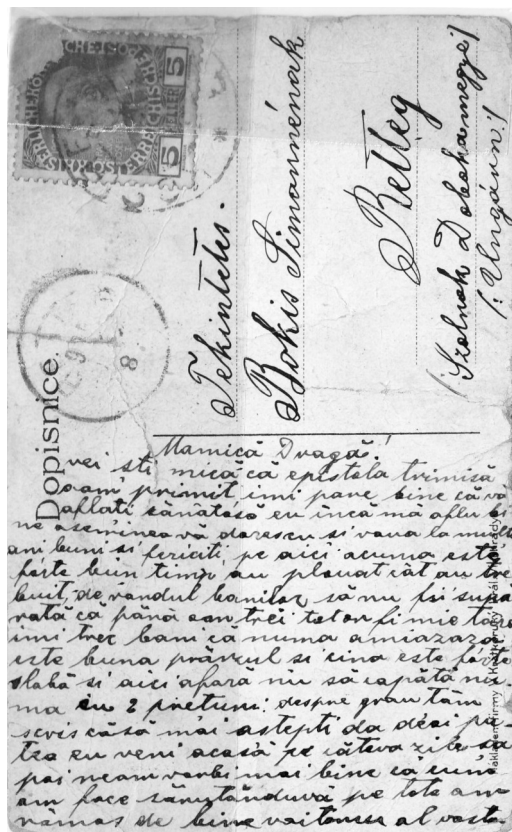 KAISERLICHE KÖNIGLICHE ÖSTERREICHISCHE POST
5 HELLER 5
Dopisnice.
Tekintetes.
Bokis Simonnénak
Retteg
(Szolnok Doboka megye)
(: Ungarn.)
Mamică Dragă!
vei sti mică că epistola trimisă
oam primit imi pare bine că vă
aflati sănatosă eu incă mă aflu bi
ne asemінеa vă doresсu si voua la multi
ani buni si fericiti, pe aici acuma este
forte bun timp au plouat cât au tre
buit, de randul banilor să nu fii supă
rată că până
imi trec bani ca numa amiazaza
este buna prânzul si cina este forte
slabă si aici afara nu să capătă nu
ma cu 2 pretuni: despre grau tăm
scris casă mai astepti da deai pu
tea eu veni acasă pe câteva zile sa
pai neam vorbi mai bine că cum
am face sărutânduvă pe tote am
rămas de bine voitoru al vostru